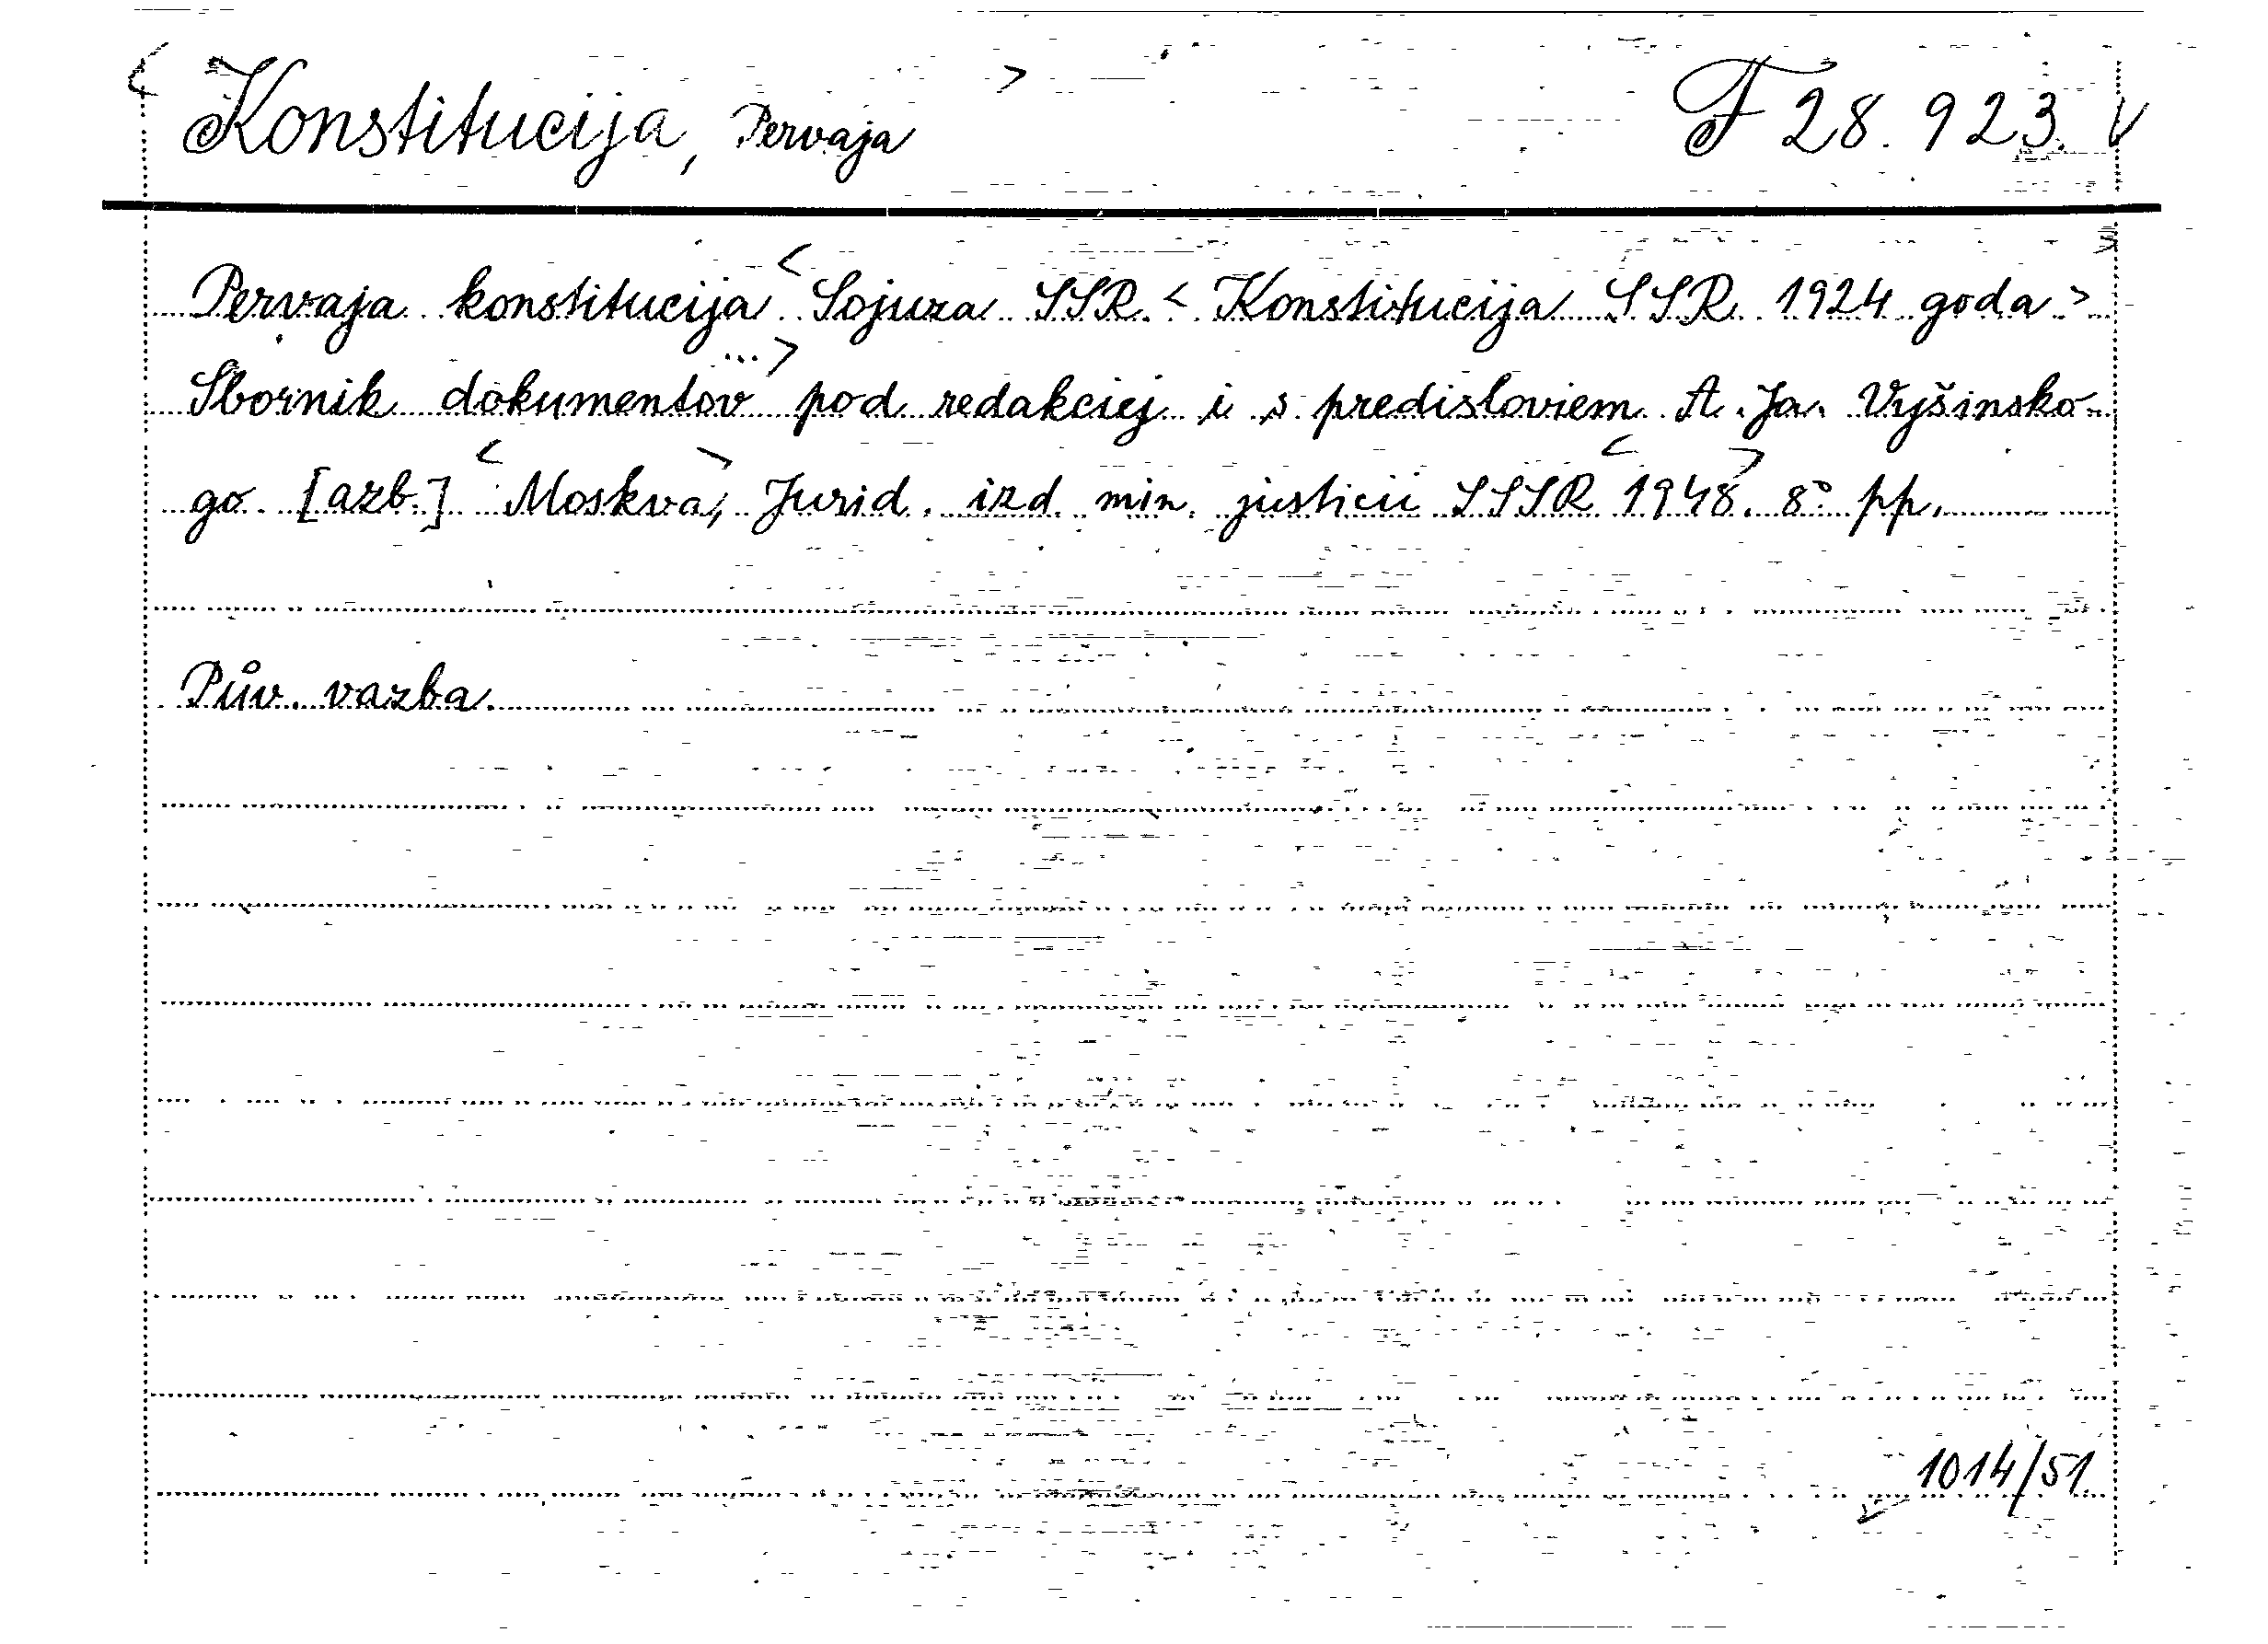 < Konstitucija, Pervaja > F 28.923. V
Pervaja konstitucija < Sojuza SSR. < Konstitucija SSR 1924 goda >
Sbornik dokumentov ...> pod redakciej i s predisloviem A. Ja. Vyšinsko-
go. [azb.] < Moskva >, Jurid. izd. min. justicii SSSR < 1948 >. 8° pp.
Pův. vazba.
1014/51.